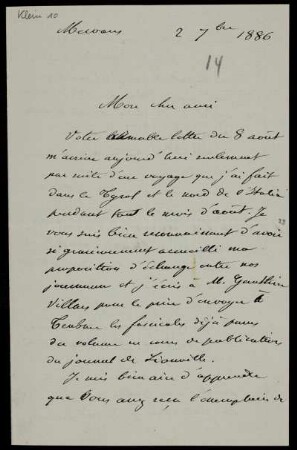 Klein 10
2 7bre 1886
14
Mon cher ami
Votre aimable lettre du 8 août
m'arrive aujourd'hui seulement
par suite d'un voyage que j'ai fait
dans le Tyrol et le nord de l'Italie
pendant tout le mois d'août. Je
vous suis bien reconnaissant d'avoir
si gracieusement accueilli ma
proposition d'échange entre nos
journaux et j'écris à M. Gauthier
Villars pour le prier d'envoyer à
Teubner les fascicules déjà parus
du volume en cours de publication
du journal de Liouville.
Je suis bien aise d'apprendre
que vous avez reçu l'exemplaire de